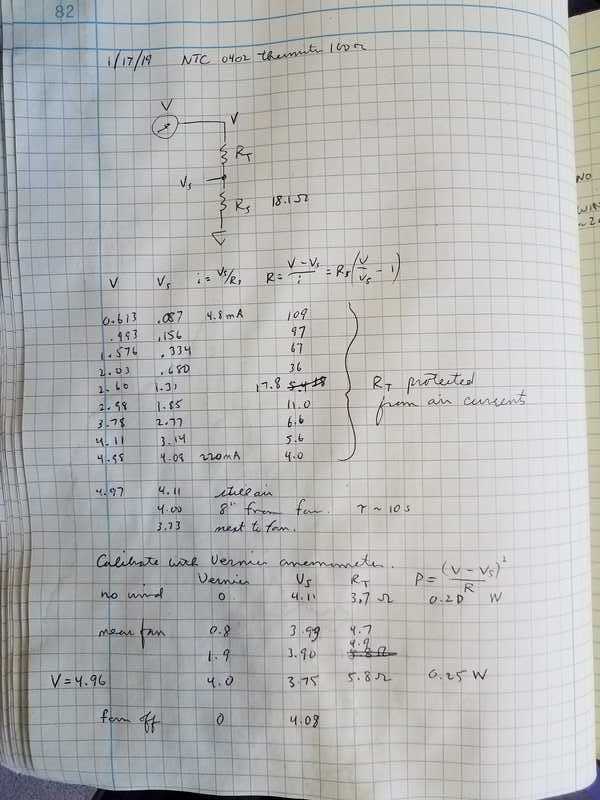 82
1/17/19 NTC 0402 thermistor 100Ω
V
V
R_T
V_s
R_s 18.1Ω
V V_s i = V_s/R_s R = (V - V_s)/i = R_s (V/V_s - 1)
0.613 .087 4.8mA 109
.993 .156 97
1.576 .334 67
2.03 .680 36
2.60 1.31 17.8
2.98 1.85 11.0
3.78 2.77 6.6
4.11 3.14 5.6
4.98 4.08 220mA 4.0
R_T protected
from air currents
4.97 4.11 still air
4.00 8" from fan. τ ~ 10s
3.73 next to fan.
Calibrate with Vernier anemometer.
Vernier V_s R_T P = (V - V_s)²/R
no wind 0 4.11 3.7 Ω 0.20 W
near fan 0.8 3.99 4.7
1.9 3.90 4.9
V = 4.96 4.0 3.75 5.8Ω 0.25 W
fan off 0 4.08
NO